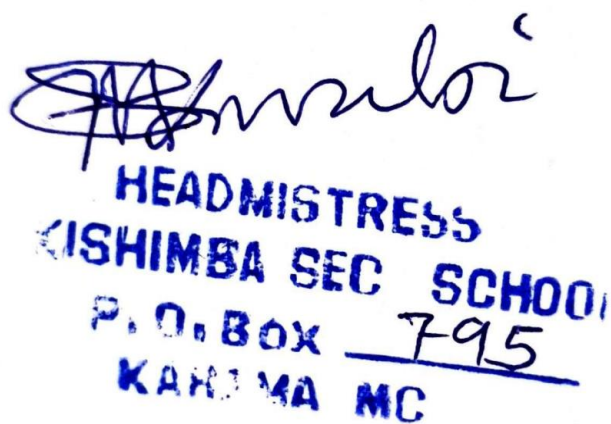 HEADMISTRESS
KISHIMBA SEC SCHOOL
P.O.BOX 795
KAHAMA MC